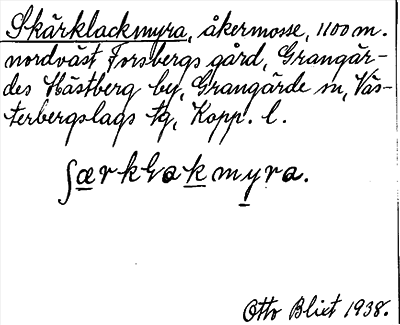 Skärklackmyra, åkermosse, 1100 m.
nordväst Forsbergs gård, Grangär-
des Hästberg by, Grangärde sn, Väs-
terbergslags tg, Kopp. l.
ʃærkɫakmyra.
Otto Blixt 1938.